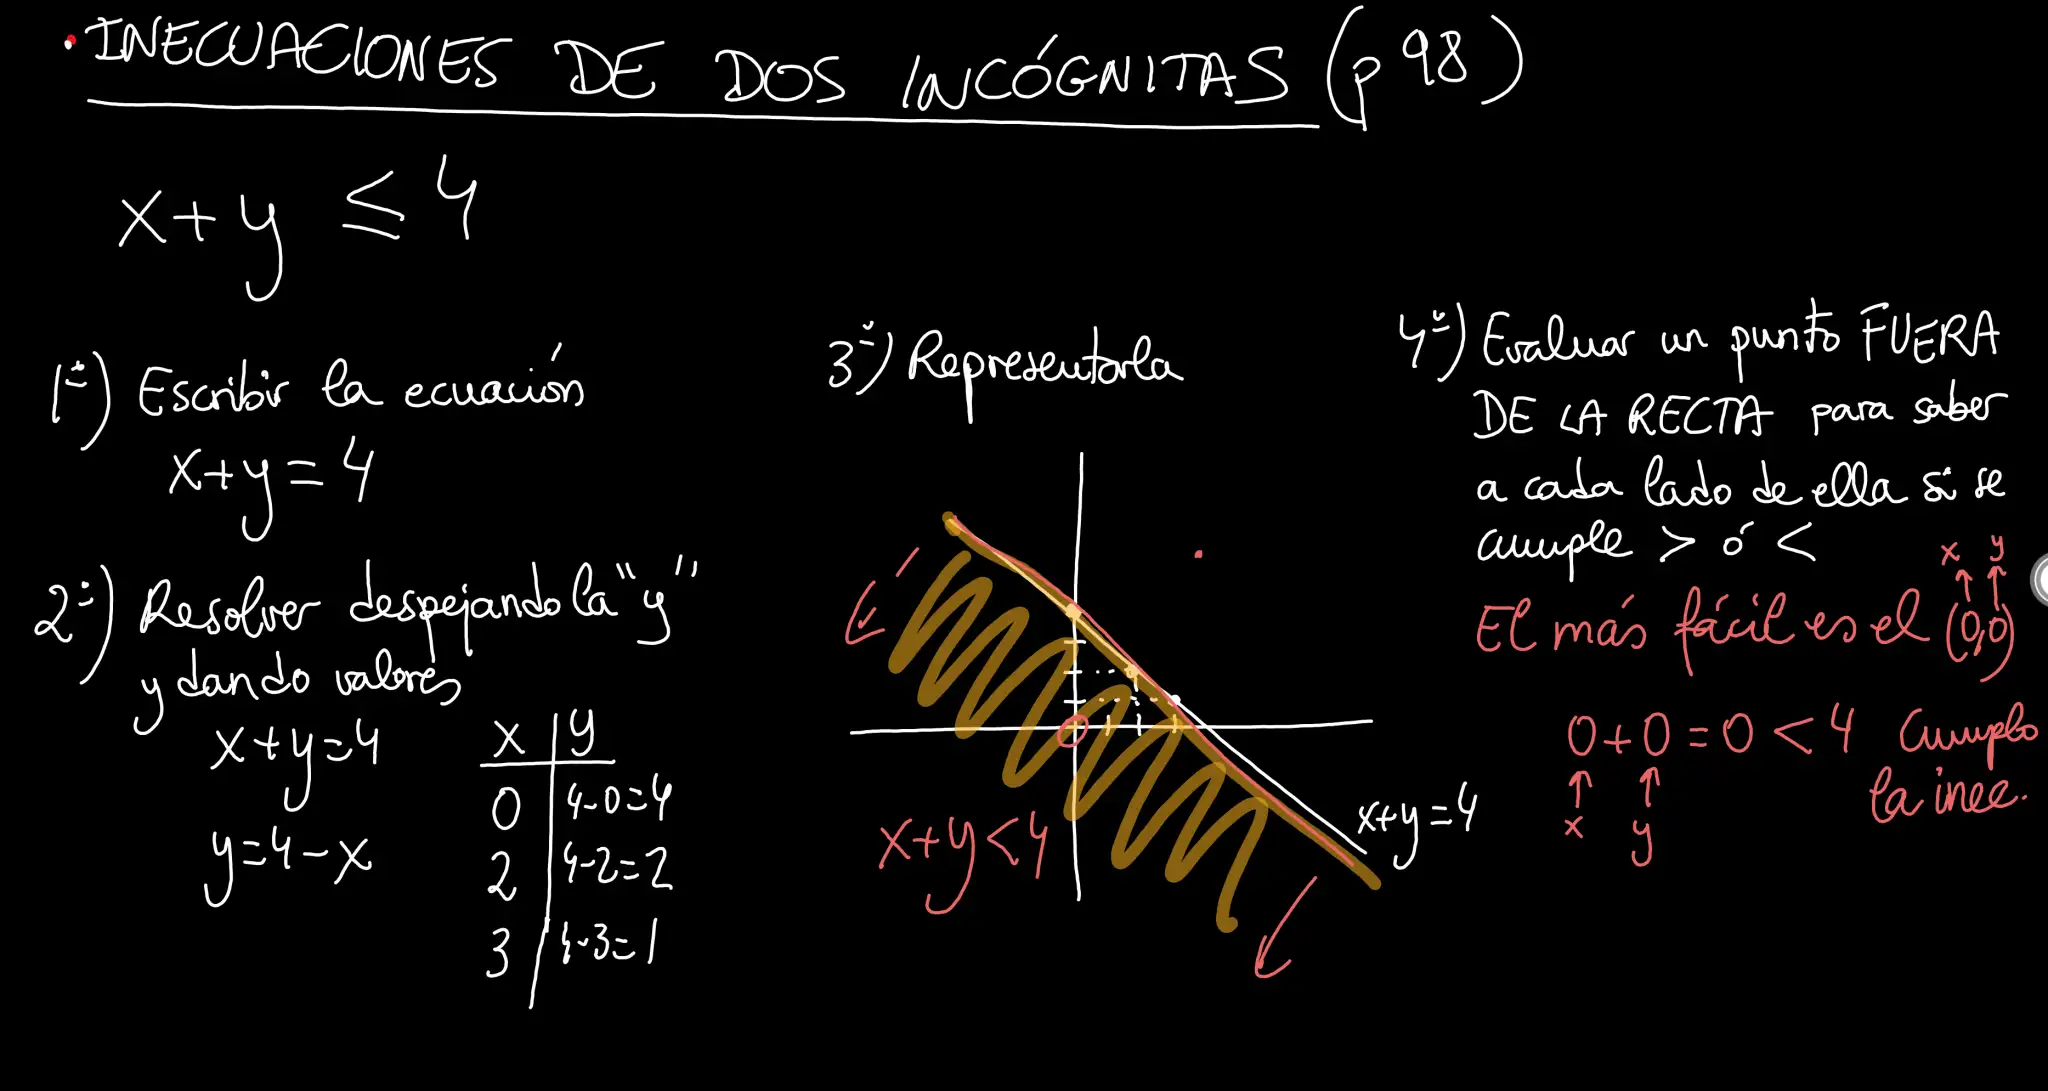 · INECUACIONES DE DOS INCÓGNITAS (p 98)
x+y ≤ 4
1º) Escribir la ecuación
x+y=4
2º) Resolver despejando la "y"
y dando valores
x+y=4
y=4-x
x y
0 4-0=4
2 4-2=2
3 4-3=1
3º) Representarla
x+y=4
x+y<4
4º) Evaluar un punto FUERA
DE LA RECTA para saber
a cada lado de ella si se
cumple > ó <
x y
↑ ↑
El más fácil es el (0,0)
0+0=0<4 Cumplo
la inec.
↑ ↑
x y